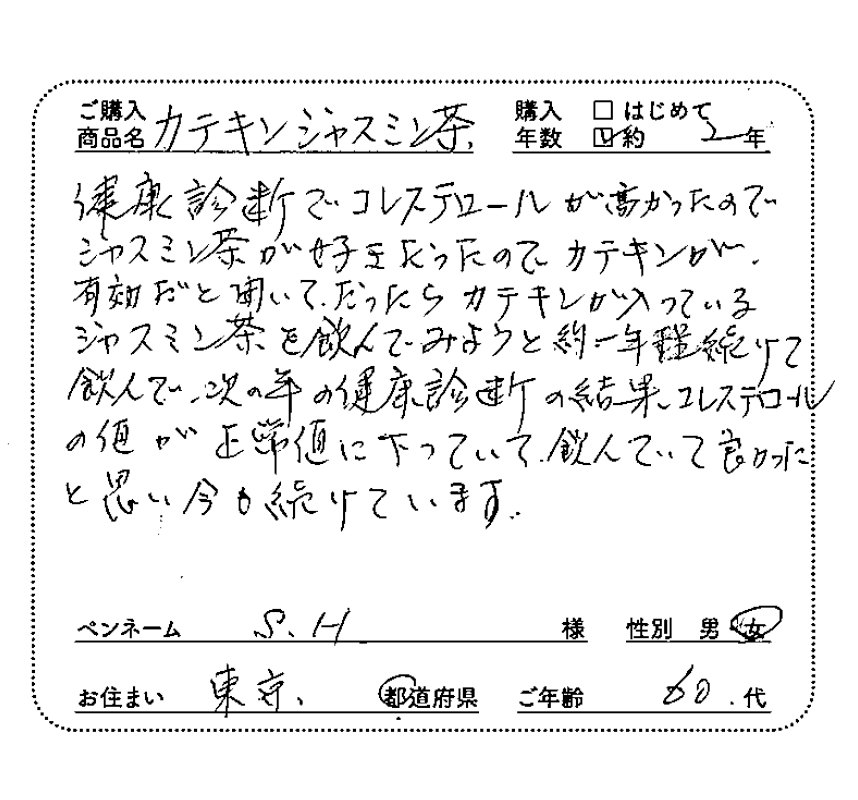 ご購入商品名 カテキンジャスミン茶 購入年数 □はじめて ☑約2年
健康診断でコレステロールが高かったので
ジャスミン茶が好きだったのでカテキンが、
有効だと聞いて、だったらカテキンが入っている
ジャスミン茶を飲んでみようと約一年程続けて
飲んで、次の年の健康診断の結果、コレステロール
の値が正常値に下っていて、飲んでいて良かった
と思い今も続けています。
ペンネーム S.H 様 性別 男 女
お住まい 東京、 都道府県 ご年齢 60.代